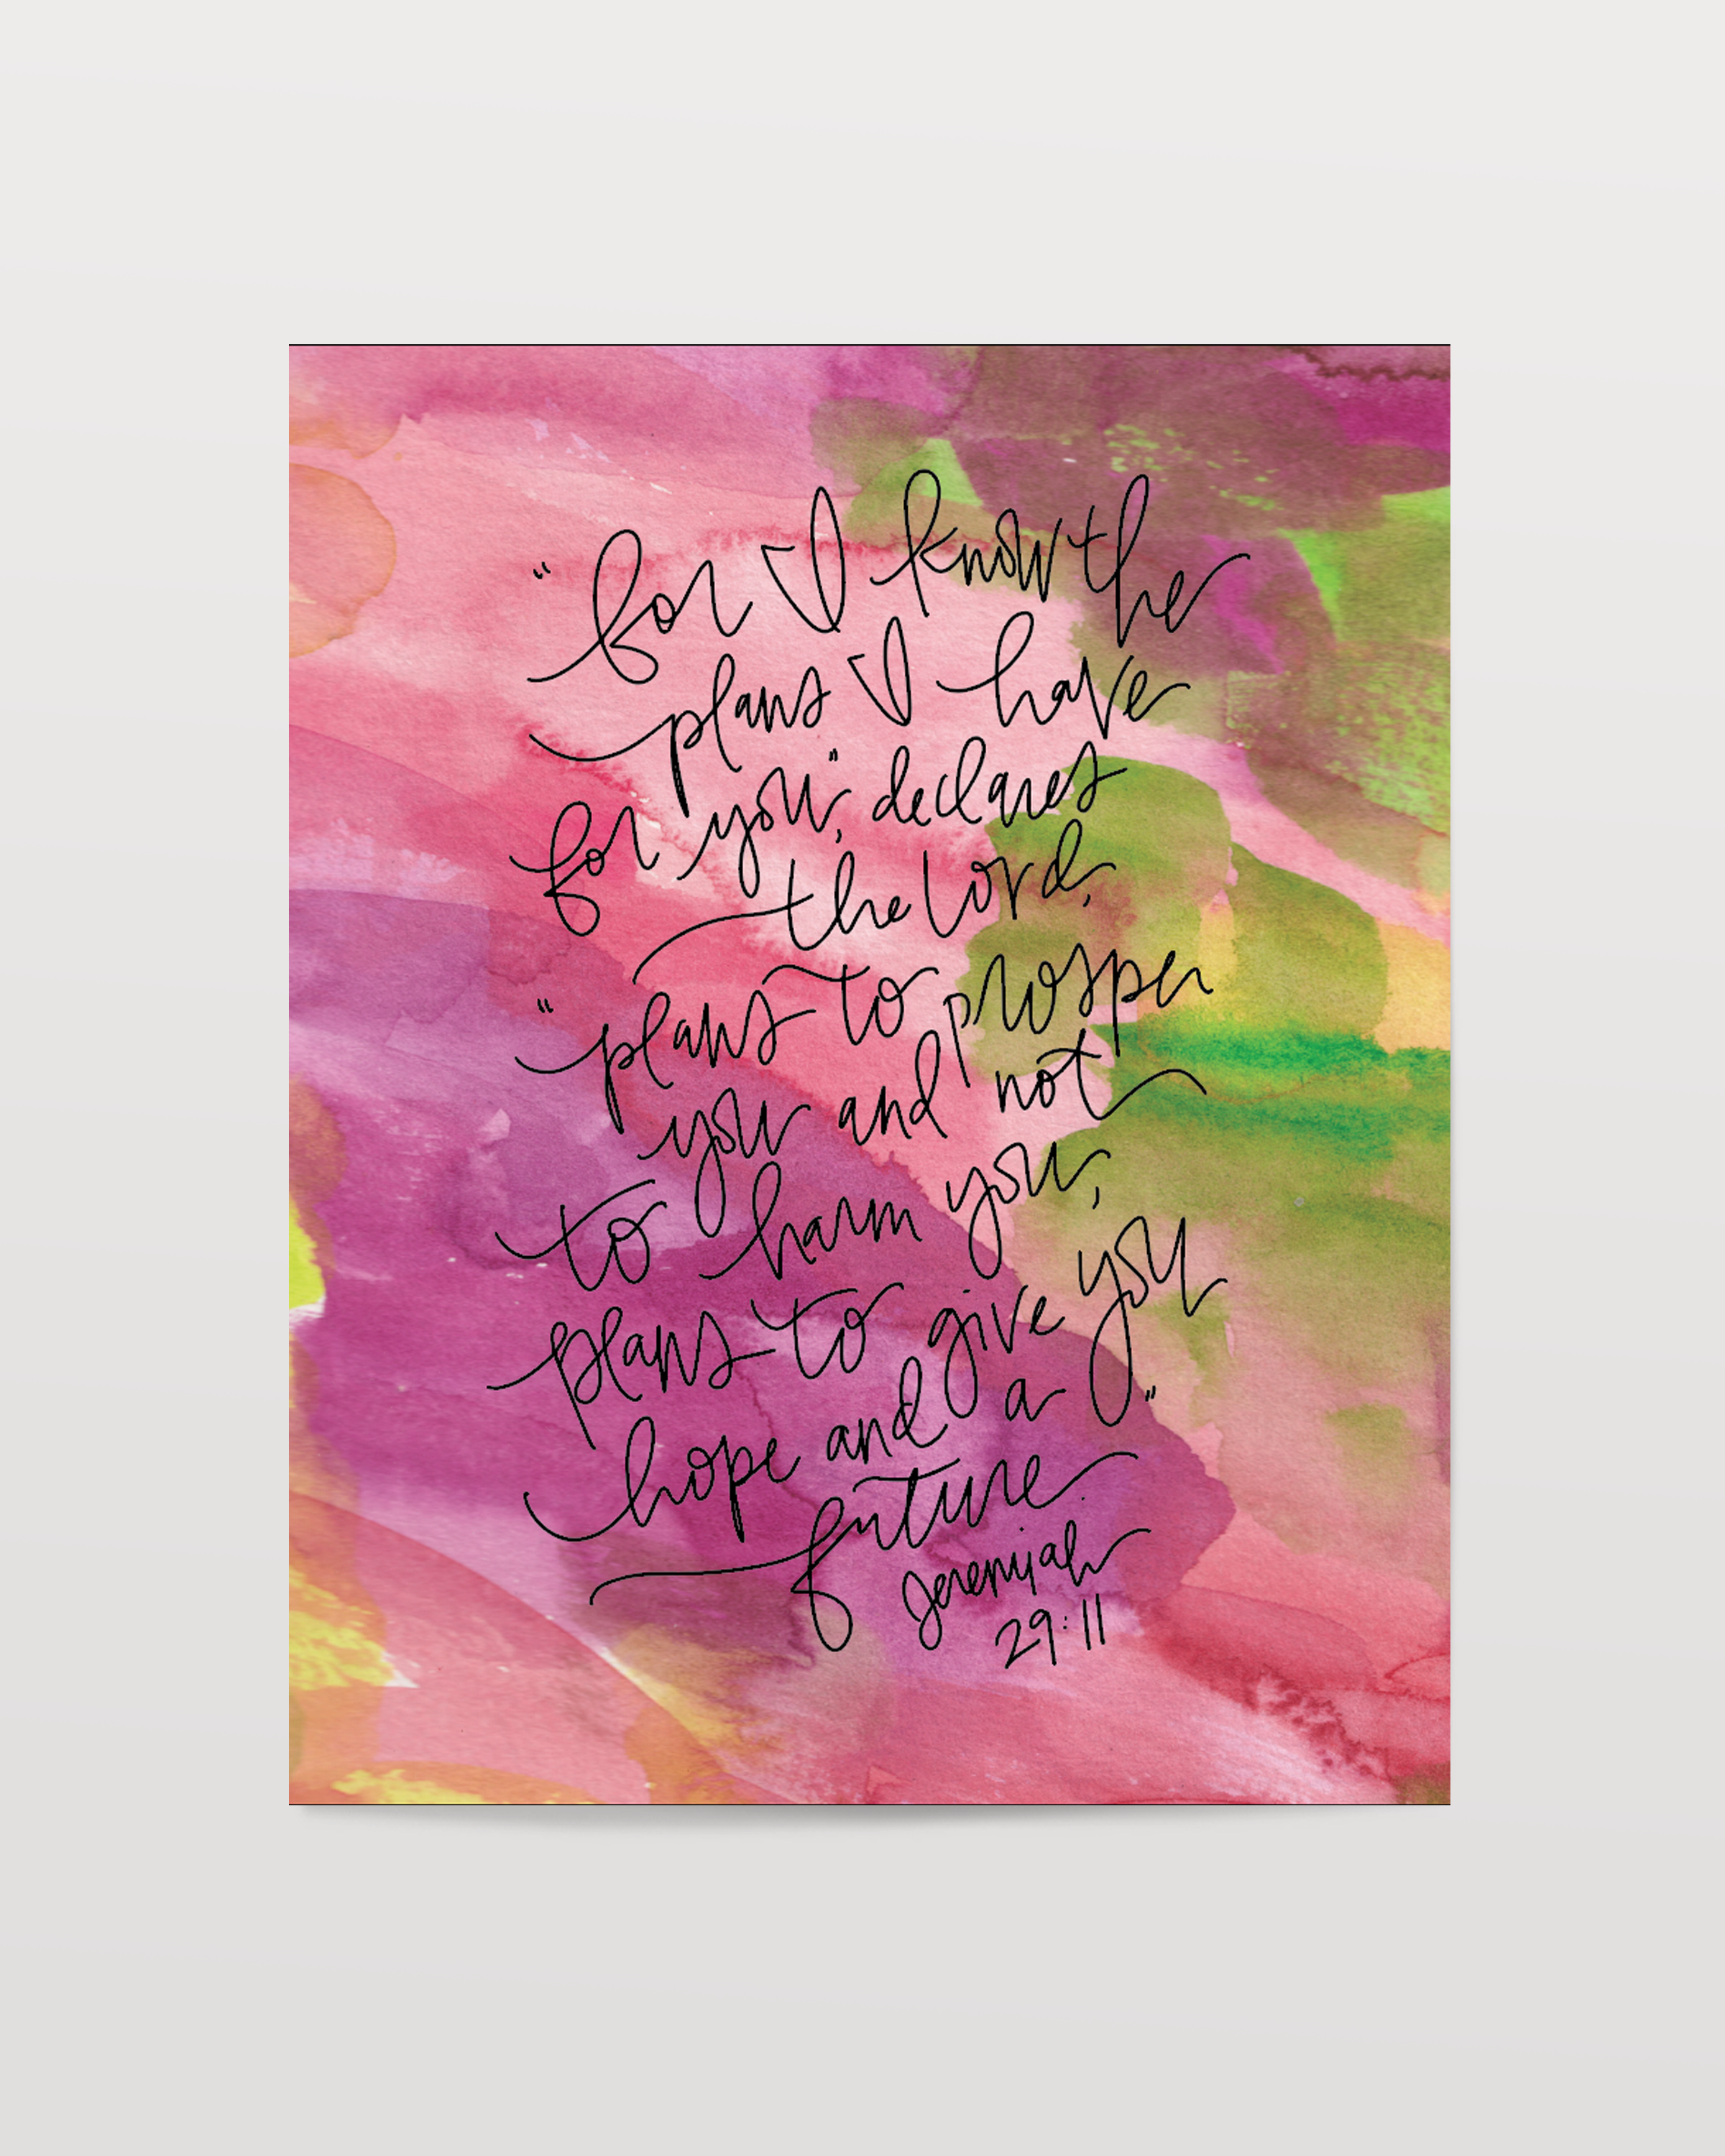 "for I know the
plans I have
for you", declares
the lord,
"plans to prosper
you and not
to harm you,
plans to give you
hope and a"
future.
Jeremiah
29:11